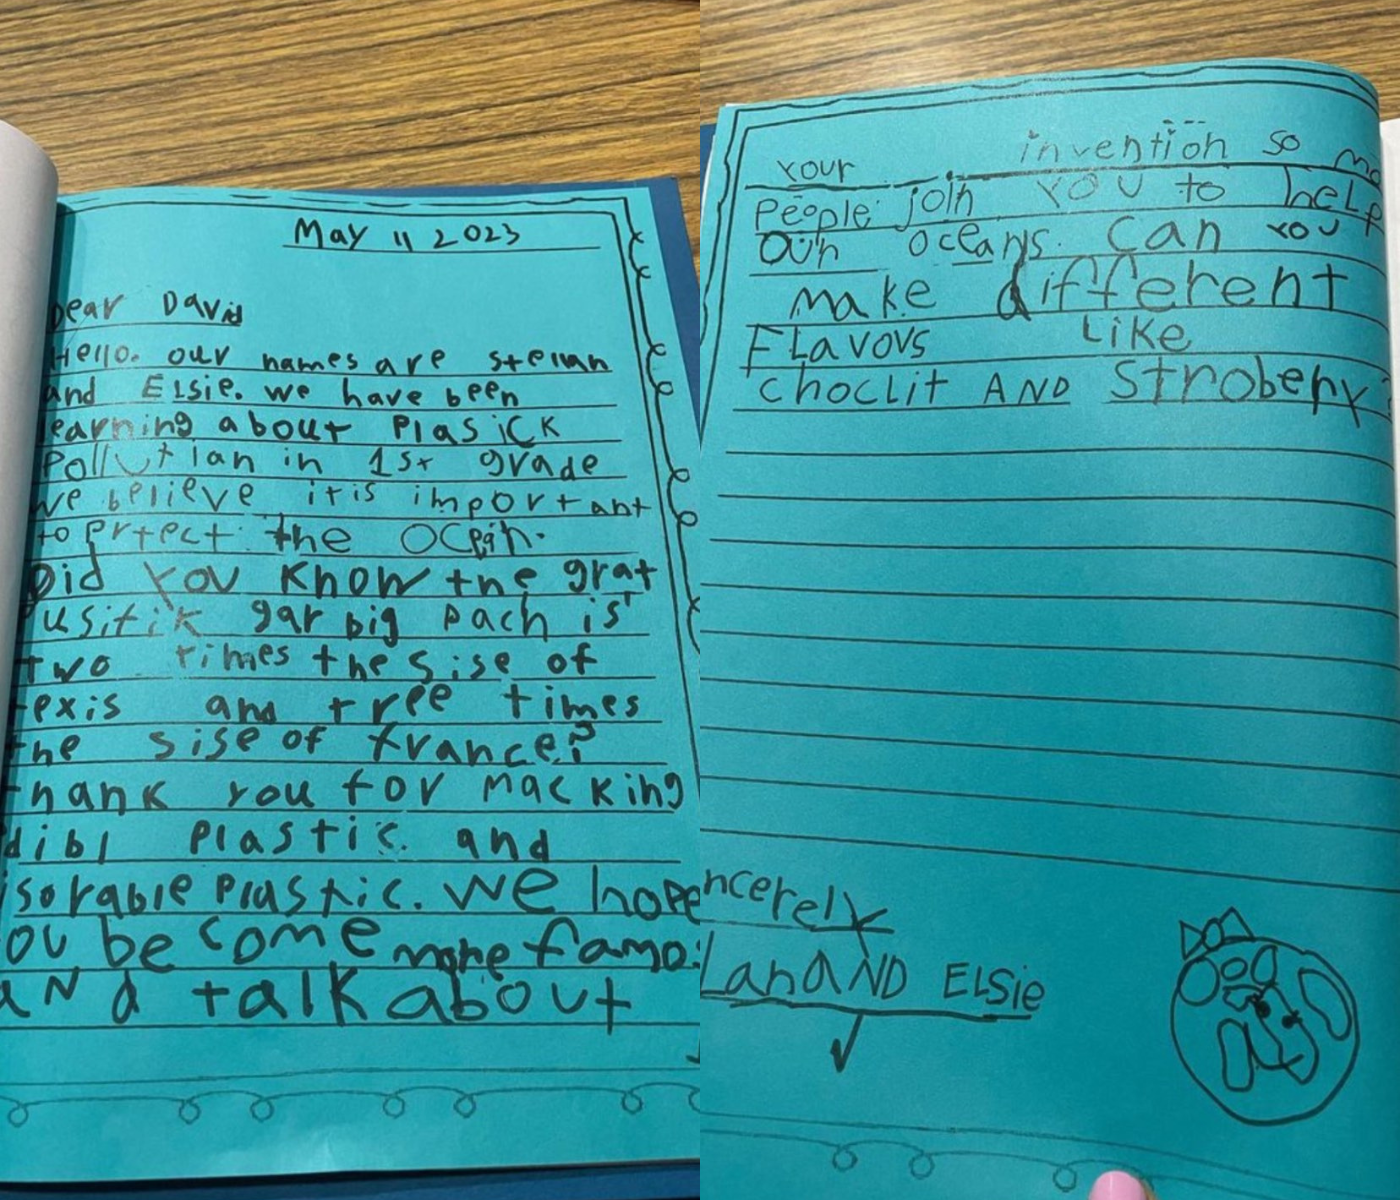 May 11 2023
Dear David
Hello. our names are stellan
and ELsie. we have been
learning about PlasicK
Pollutian in 1st grade
we believe itis important
to Prtect the OCein.
Did you know the grat
usitik gar big pach is
two times the Sise of
texis and tree times
the sise of france?
thank you for macking
dibl Plastic and
isorable Plastic. we hope
you be come more famos
aNd talk about
Your invention so mo
People join YOU to heLp
our oceans. can you
make different
FLavors Like
choclit AND Strobery?
ncerely
Lan AND ELSie